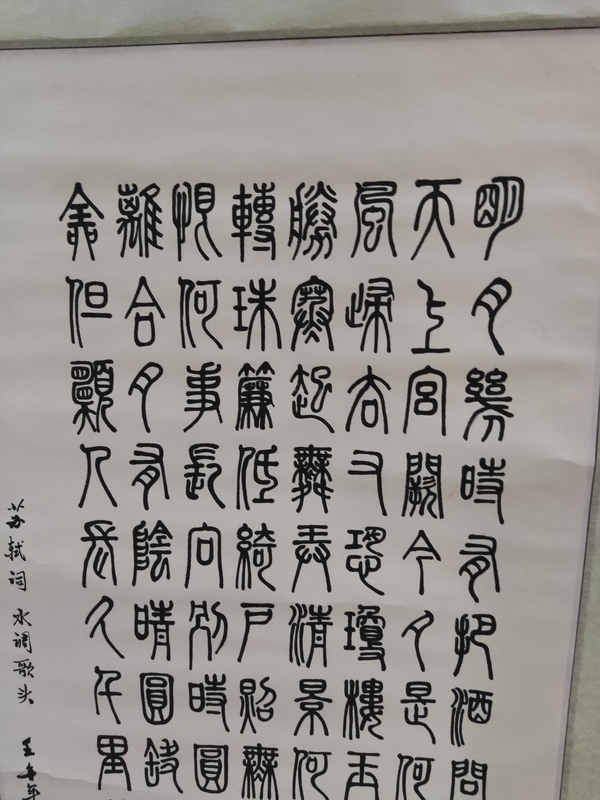 明月幾時有把酒問
天上宮闕今夕是何
風歸去又恐瓊樓玉
勝寒起舞弄清景何
轉珠簾低綺戶照無
恨何事長向別時圓
離合月有陰晴圓缺
全但願人長久千里
苏轼词 水调歌头 壬午年